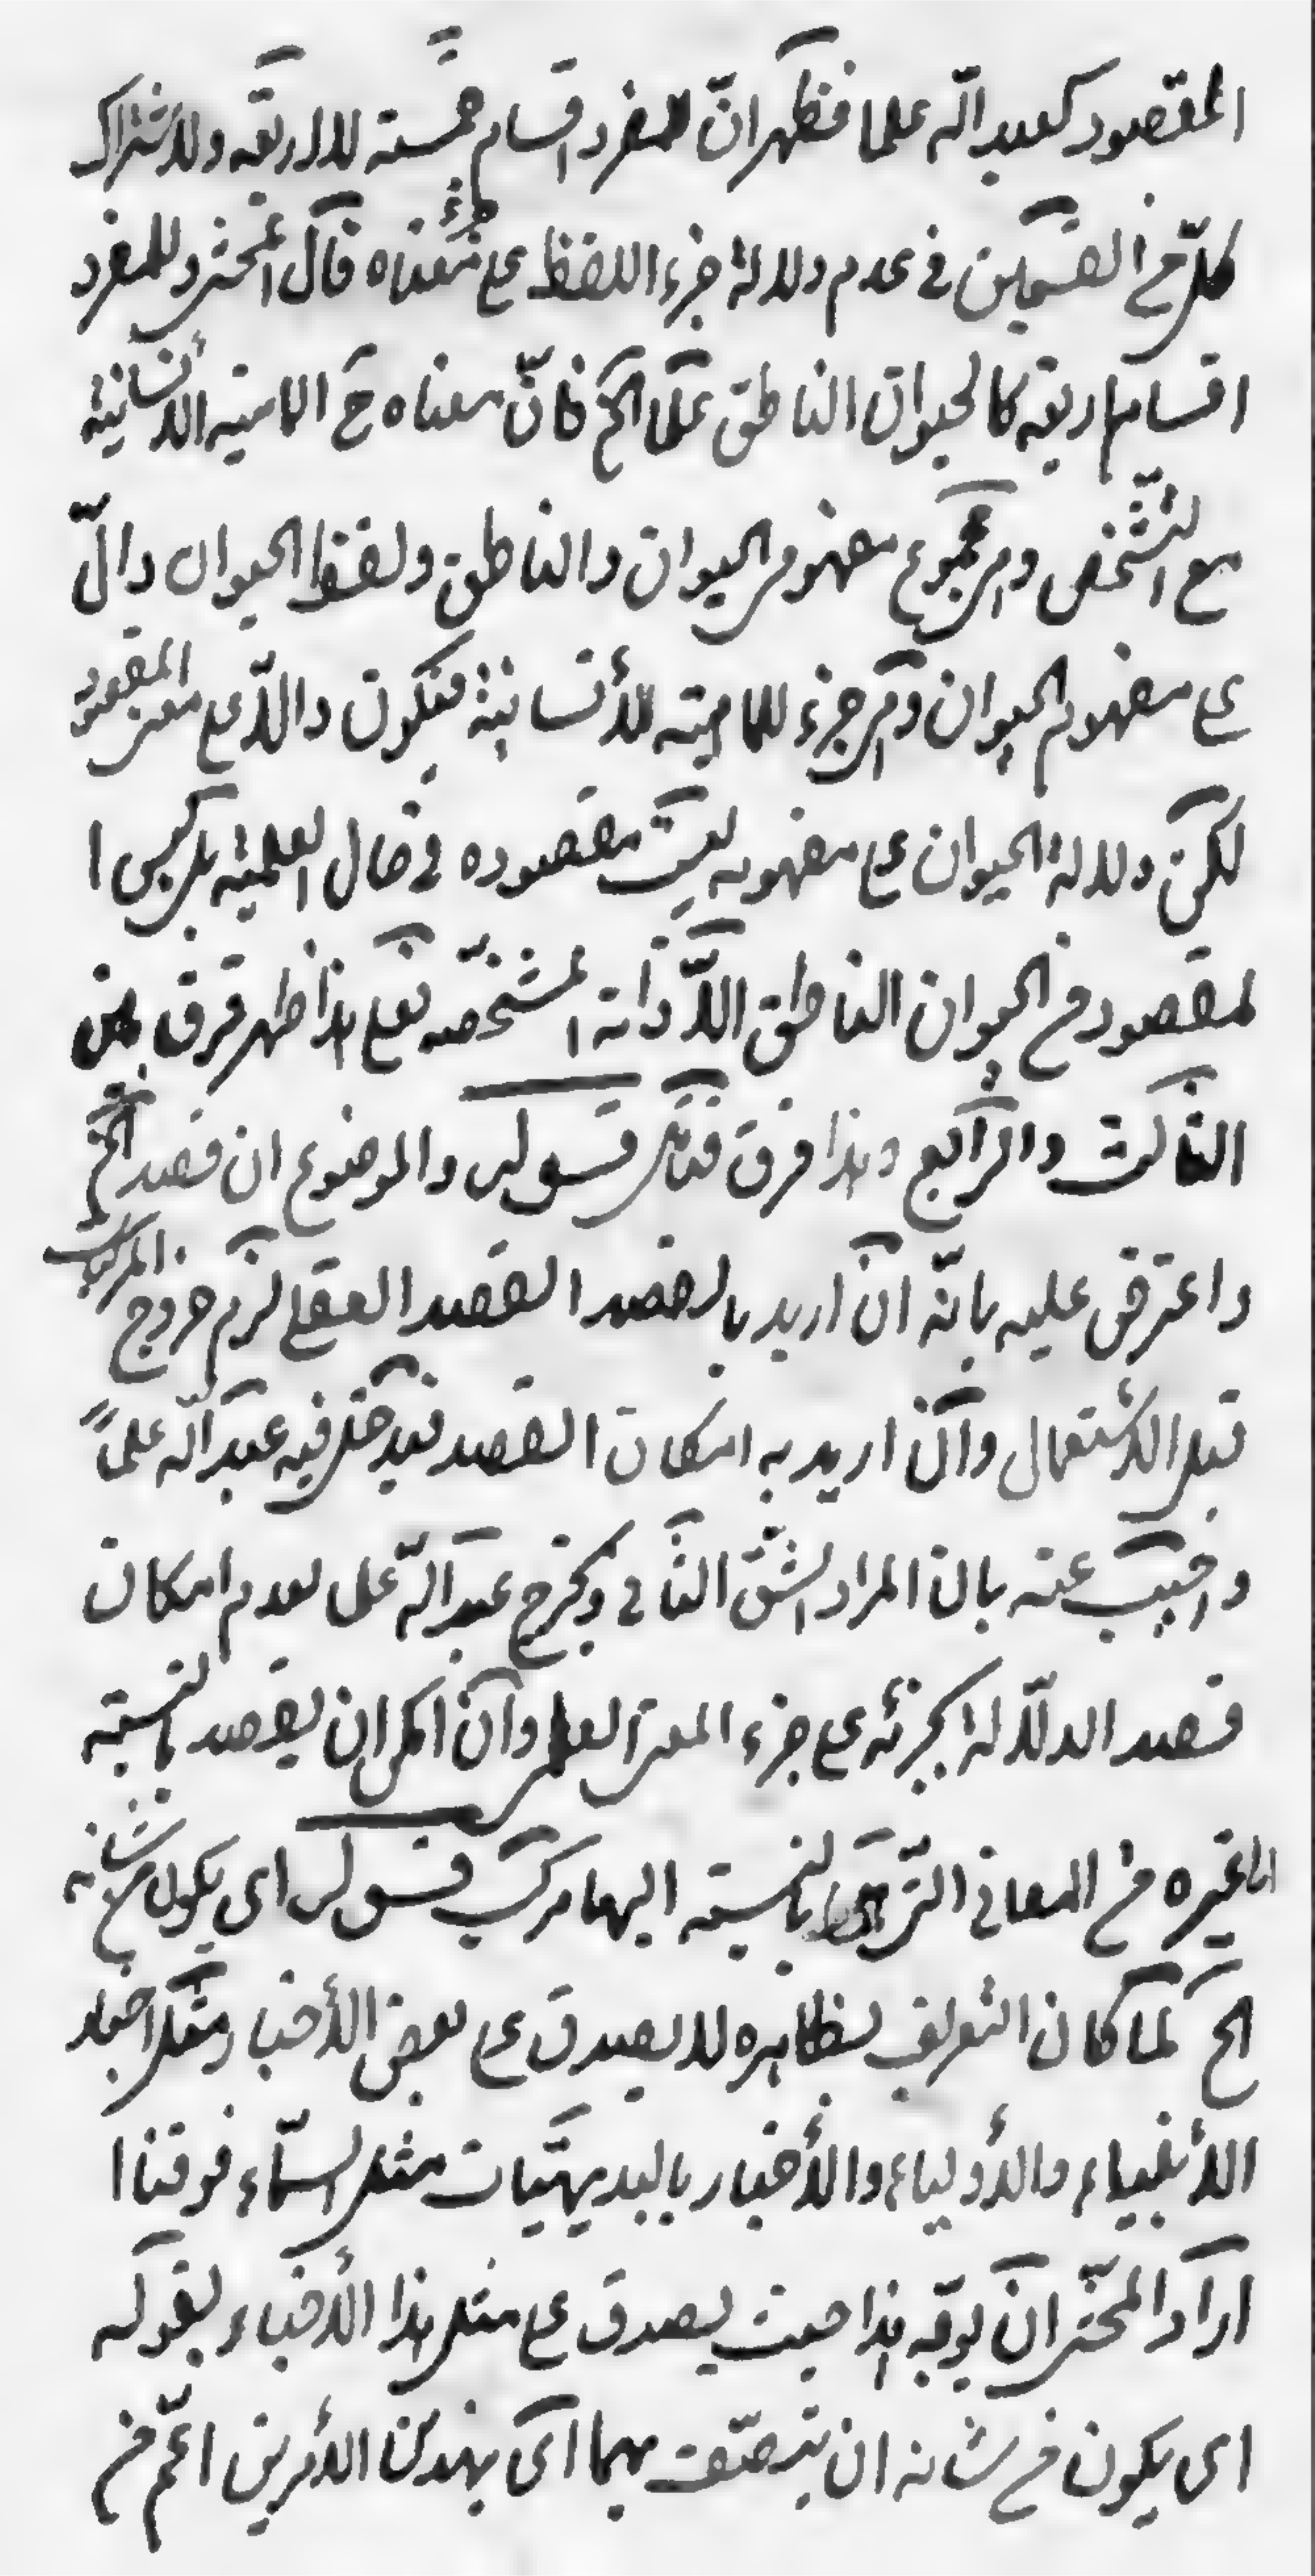 المقصود كعبد الله علما فظهر انّ للمفرد اقسام خمسة لا اربعة ولاشتراك
كلّ من القسمين في عدم دلالة جزء اللفظ على معناه قال المحشى وللمفرد
اقسام اربعة كالحيوان الناطق علما الخ فانّ معناه ح الماهية الانسانية
مع التشخص وهى مجموع مفهومى الحيوان والناطق ولفظ الحيوان دالّ
على مفهوم الحيوان وهى جزء للماهية الأنسانية فتكون دالّا على معنى المقصود
لكن دلالة الحيوان على مفهومه ليست مقصوده في حال العلمية بل ليس ا
لمقصود من الحيوان الناطق الّا ذاته المشخّصه فعلى هذا ظهر فرق بين
الثالث والرّابع وهذا فرق فتأمل قسوله والموضوع ان قصد الخ
واعترض عليه بانّه ان اريد بالقصد القصد العقلى لزم خروج المركبات
قبل الأستعمال وان اريد به امكان القصد فيدخل فيه عبد الله علماً
واجيب عنه بان المراد الشق الثانى ويخرج عبد الله علما لعدم امكان
قصد الدلّالة بجزئه على جزء المعنى العلمى وان امكن ان يقصد بالنسبة
الى غيره من المعاني التى بالنسبة اليها مركب قسوله اى يكون من شانه
الخ لما كان التعريف بظاهره لا يصدق على بعض الأخبار مثل اخبار
الأنبياء والأولياء والأخبار بالبديهيّات مثل السمّاء فوقنا ا
اراد المحشى ان يوجّه بهذا حيث يصدق على مثل هذا الأخبار بقوله
اى يكون من شانه ان يتصّف بهما اى بهذين الأمرين اعمّ من